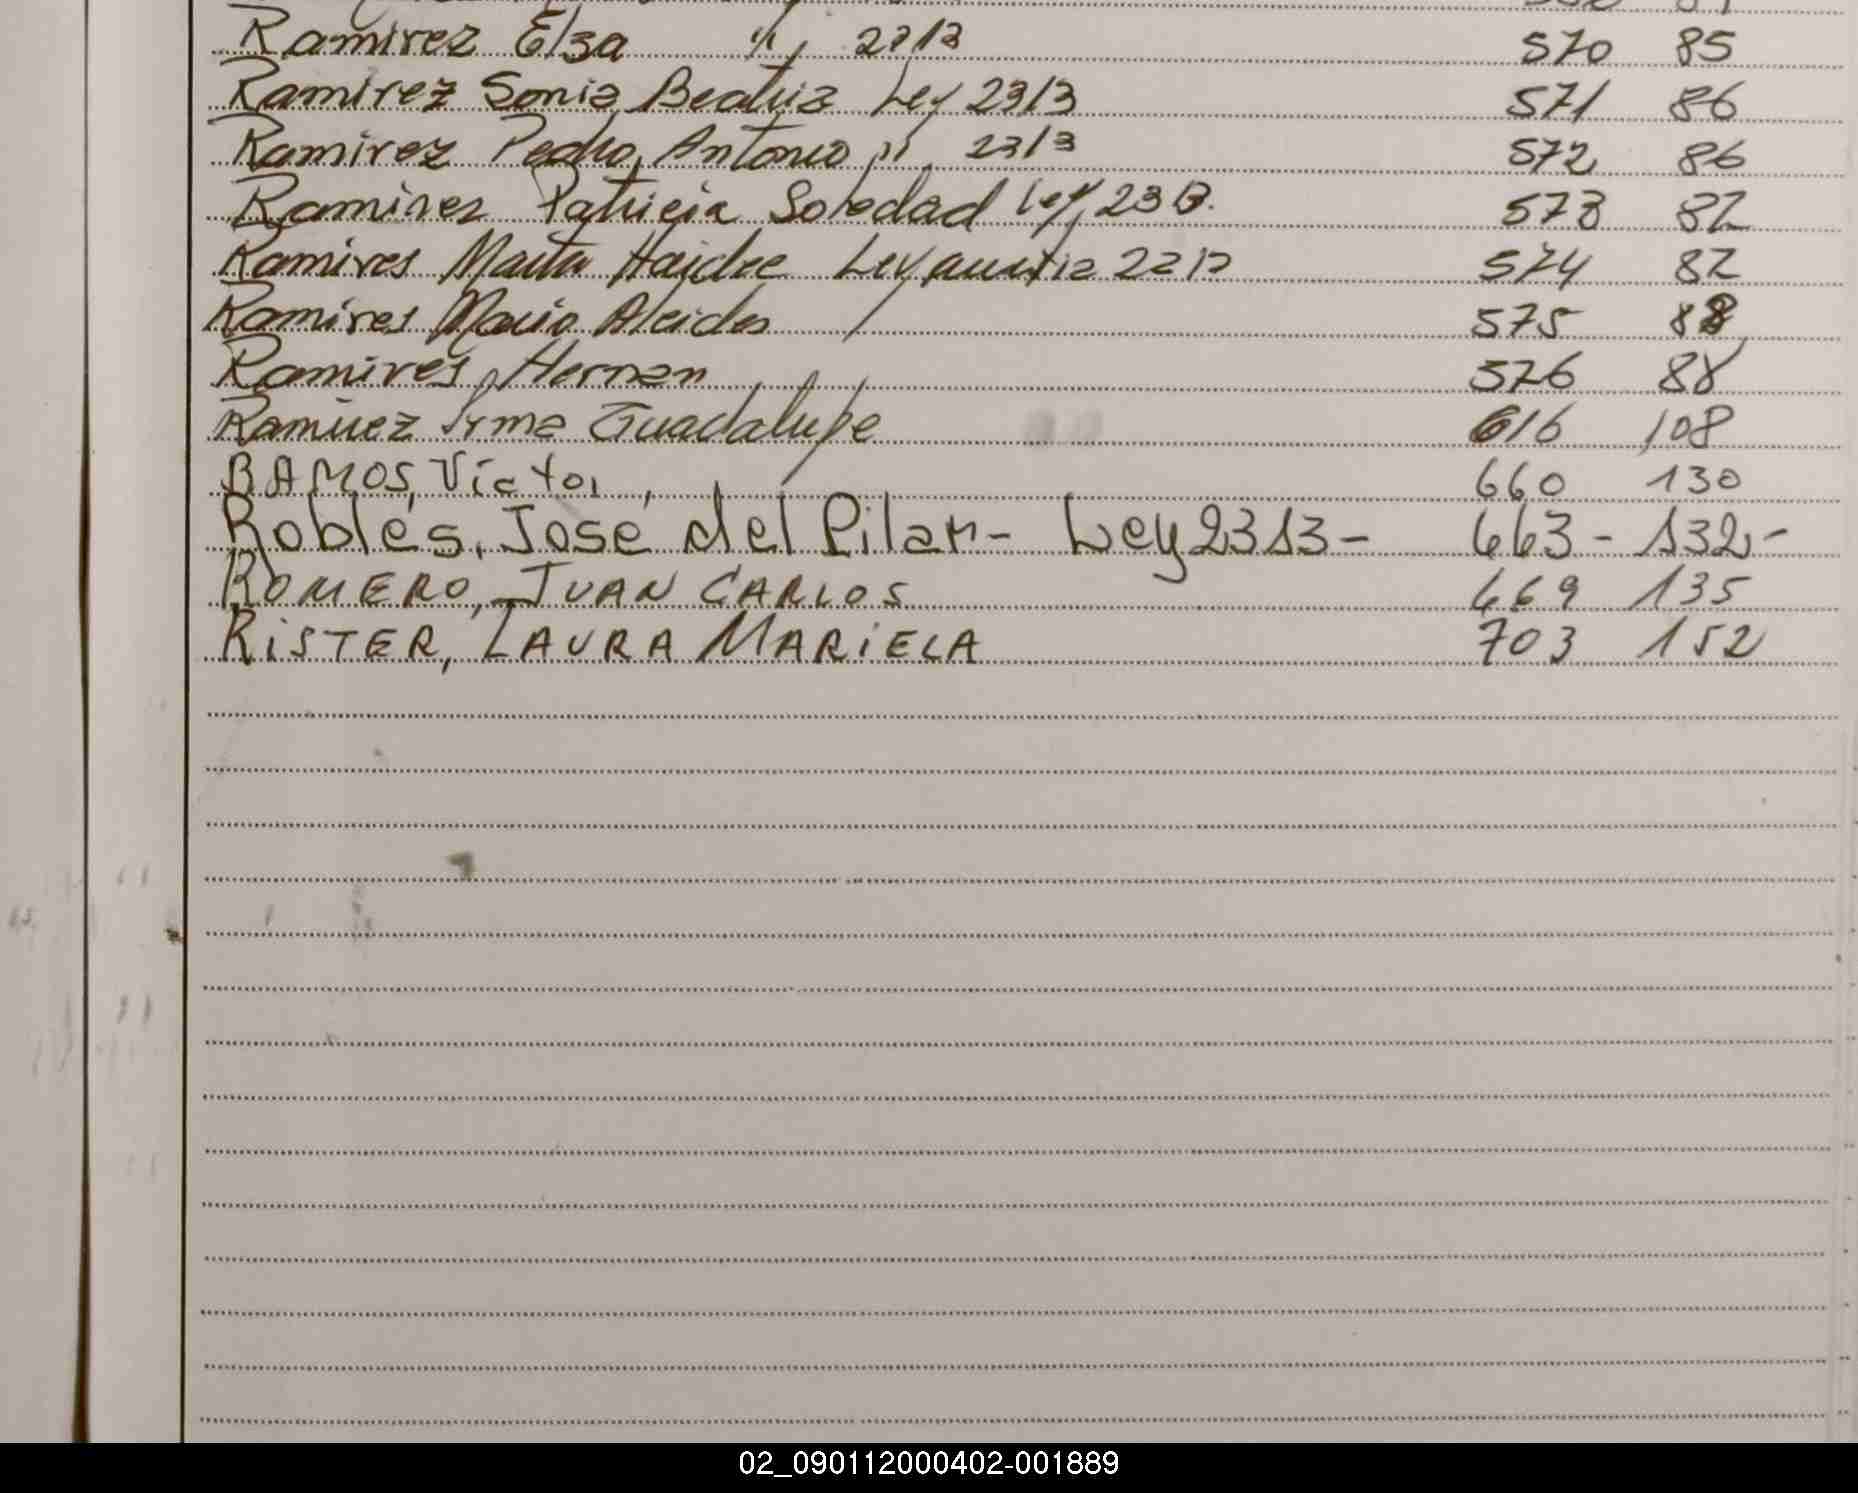 Ramirez Elsa " 2213 570 85
Ramirez Sonia Beatriz Ley 2313 571 86
Ramirez Pedro Antonio " 2313 572 86
Ramires Patricia Soledad Ley 2313. 573 87
Ramires Marta Haidee Ley 2213 574 87
Ramires Mario Alcides 575 88
Ramires Hernan 576 88
Ramirez Irma Guadalupe 616 108
RAMOS, Victor 660 130
Robles, José del Pilar- Ley 2313- 663- 132-
ROMERO, JUAN CARLOS 669 135
RiSTER, LAURA MARiELA 703 152
02_090112000402-001889